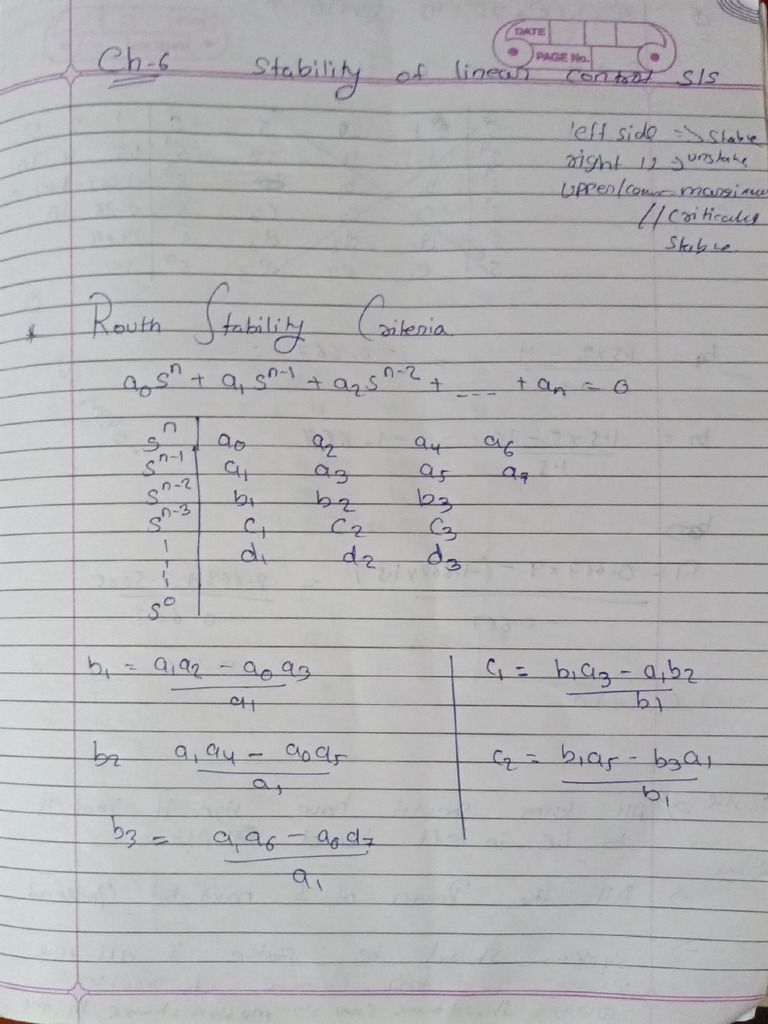 DATE
PAGE No.
Ch-6 Stability of linear control S/S
left side => stable
right " => unstable
upper/
// critically
stable
* Routh Stability Criteria
a₀sⁿ + a₁sⁿ⁻¹ + a₂sⁿ⁻² + --- + aₙ = 0
sⁿ | a₀ a₂ a₄ a₆
sⁿ⁻¹ | a₁ a₃ a₅ a₇
sⁿ⁻² | b₁ b₂ b₃
sⁿ⁻³ | c₁ c₂ c₃
| d₁ d₂ d₃
s⁰
b₁ = (a₁a₂ - a₀a₃) / a₁
b₂ (a₁a₄ - a₀a₅) / a₁
b₃ = (a₁a₆ - a₀a₇) / a₁
c₁ = (b₁a₃ - a₁b₂) / b₁
c₂ = (b₁a₅ - b₃a₁) / b₁